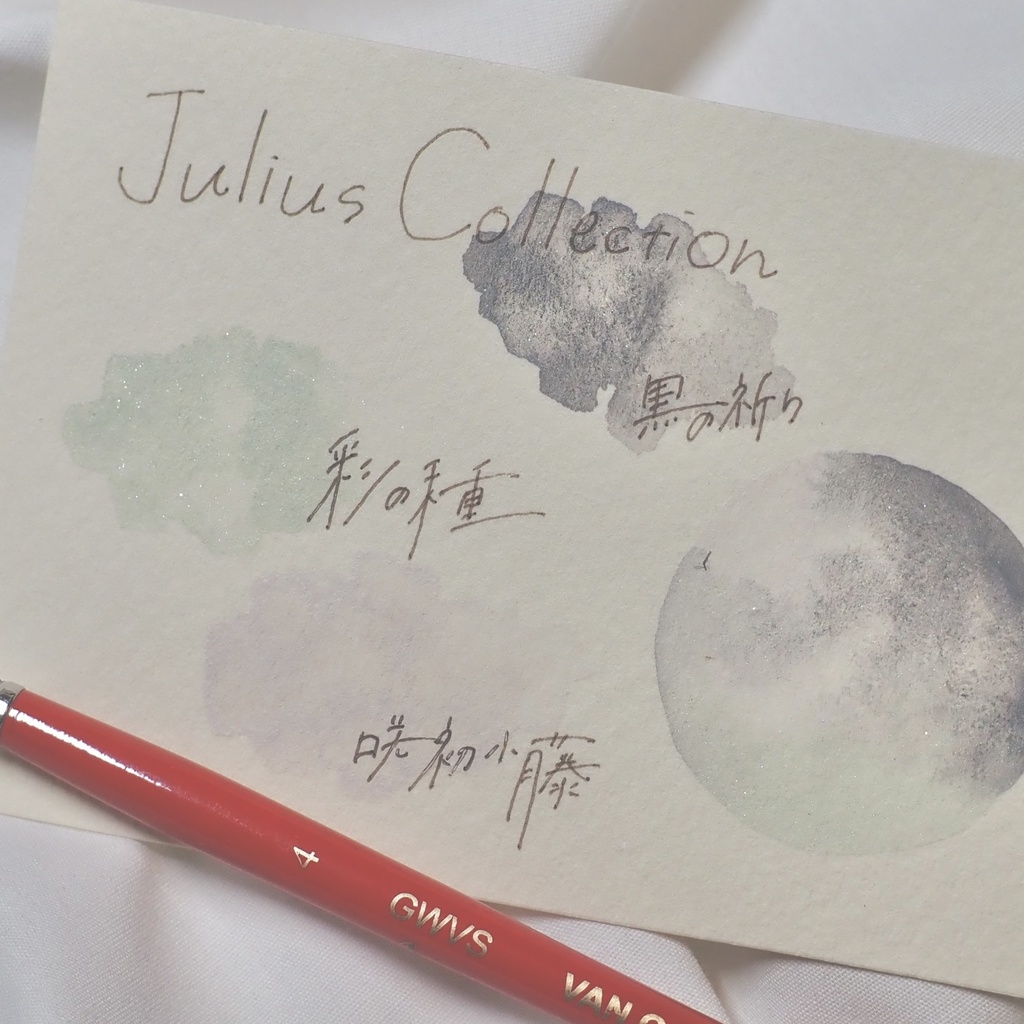 Julius Collection
黒の祈り
彩の種
咲初小藤
4 GWVS VAN